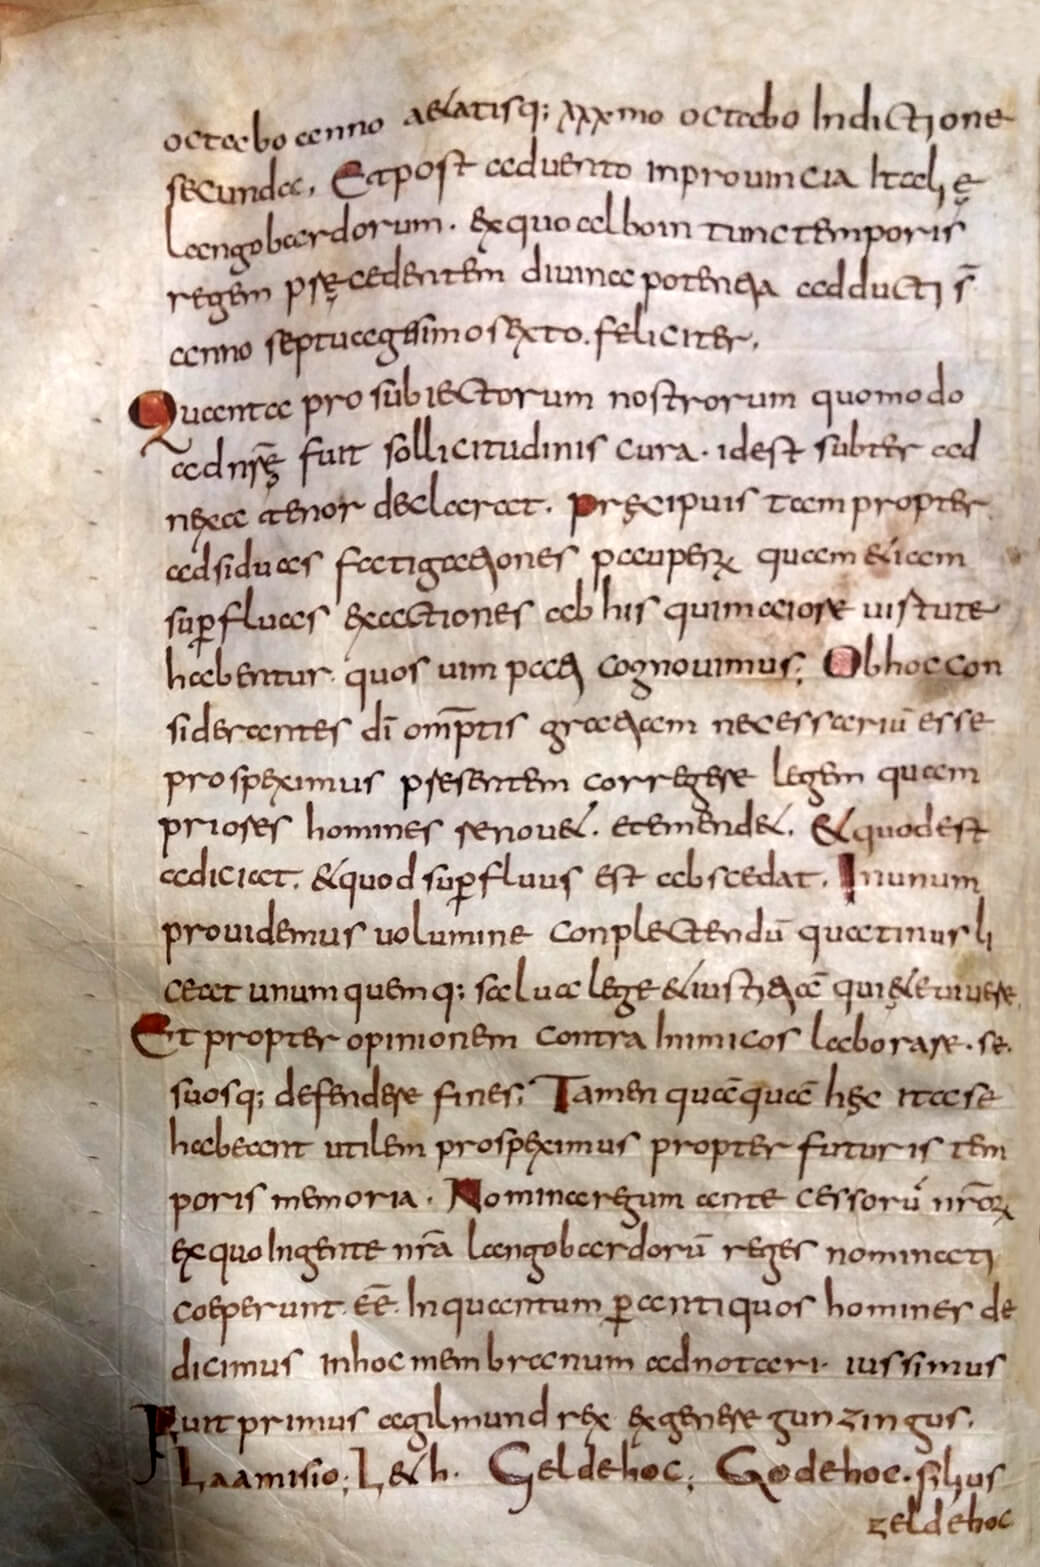 octabo anno aetatisq; xxxmo octabo Indictione
secunda. Et post aduento inprouincia Italię
langobardorum. ex quo alboin tunc temporis
regem pręcedentem diuina potentia adducti s̄
anno septuagissimo sexto. feliciter.
Quanta pro subiectorum nostrorum quomodo
ad nr̄ę fuit sollicitudinis cura. idest subter ad
nexa tenor declarat. pręcipuis tam propter
adsiduas fatigationes pauperꝝ quam etiam
suꝑfluas exactiones ab his qui maiore uirtute
habentur quos uim pati cognouimus; Ob hoc con
siderantes dī omīptis gratiam necessariū esse
prospeximus presentem corregere legem quam
priores homines renouet. et emendet. et quod est
adiciat. et quod suꝑfluus est abscedat. In unum
prouidemus uolumine conplectendū quatinus li
ceat unum quemq; salua lege et iustitiā quięte uiuere.
Et propter opinionem contra Inimicos laborare. se.
suosq; defendere fines; Tamen quā quā hęc ita se
habeant utilem prospeximus propter futuris tem
poris memoria. Nomina regum ante cessorū nr̄oꝝ
ex quo Ingente nr̄a langobardorū reges nominati
coeperunt. eē. Inquantum ꝑ antiquos homines de
dicimus inhoc membranum adnotari. iussimus
Fuit primus agilmund rex ex genere gunzingus.
Laamisio; Leth. Geldehoc; Godehoc. filius
zeldehoc